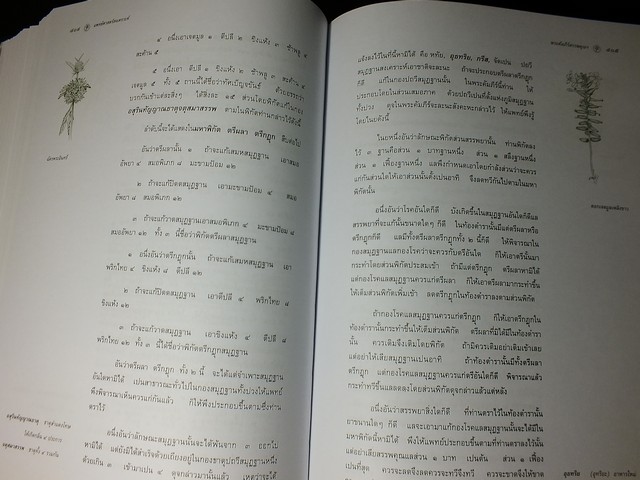 ๔ อนึ่งเอาเจตมูล ๑ ดีปลี ๒ ขิงแห้ง ๓ ช้าพลู ๔
สะค้าน ๕
๕ อนึ่งเอา ดีปลี ๑ ขิงแห้ง ๒ ช้าพลู ๓ สะค้าน ๔
เจตมูล ๕ ทั้ง ๕ ฐานนี้ได้ชื่อว่าทัศเบ็ญจขันธ์ ด้วยอรรถว่า
บวกกันเข้าแต่ละสิ่งๆ ได้สิ่งละ ๑๕ ส่วนโดยพิกัดแก้ในกอง
อสุรินทัญญาณธาตุอตุสมาสรรพ ตามในพิกัดท่านกล่าวไว้ดังนี้
ลำดับนี้จะได้แสดงในมหาพิกัด ตรีผลา ตรีกฏุก สืบต่อไป
อันว่าตรีผลานั้น ๑ ถ้าจะแก้เสมหสมุฏฐาน เอาสมอ
อัพยา ๔ สมอพิเภก ๘ มะขามป้อม ๑๒
๒ ถ้าจะแก้ปิตตสมุฏฐาน เอามะขามป้อม ๔ สมอ
อัพยา ๘ สมอพิเภก ๑๒
๓ ถ้าจะแก้วาตสมุฏฐานเอาสมอพิเภก ๔ มะขามป้อม ๘
สมออัพยา ๑๒ ทั้ง ๓ นี้ชื่อว่าพิกัดตรีผลาสมุฏฐาน
๑ อนึ่งอันว่าตรีกฏุกนั้น ถ้าจะแก้เสมหสมุฏฐาน เอา
พริกไทย ๔ ขิงแห้ง ๘ ดีปลี ๑๒
๒ ถ้าจะแก้ปิตตสมุฏฐาน เอาดีปลี ๔ พริกไทย ๘
ขิงแห้ง ๑๒
๓ ถ้าจะแก้วาตสมุฏฐาน เอาขิงแห้ง ๔ ดีปลี ๘
พริกไทย ๑๒ ทั้ง ๓ นี้ได้ชื่อว่าพิกัดตรีกฏุกสมุฏฐาน
อันว่าตรีผลา ตรีกฏุก ทั้ง ๒ นี้ จะได้แต่จำเพาะสมุฏฐาน
อันใดหามิได้ เปนสาธารณะทั่วไปในกองสมุฏฐานทั้งปวงให้แพทย์
พึงพิจารณาเห็นควรแก่กันแล้ว ก็ให้พึงประกอบขึ้นตามซึ่งท่าน
ตราไว้
อนึ่งอันว่าลักษณะสมุฏฐานนั้นจะได้พ้นจาก ๓ ออกไป
หามิได้
ด้วยเกิน ๓ เข้ามาเปน ๔
แจ้งลงไว้ในที่นี้หามิได้ คือ หทัย, อุทริย, กรีส,
สมุฏฐานสงเคราะห์เอาชาติจะละนะ ถ้าจะประกอบตรีผลาตรีกฏุก
ก็ดี แก้ในกองปถวีสมุฏฐานนั้น ในพระคัมภีร์นี้ท่าน ให้
ประกอบโดยในส่วนเสมอภาค ด้วยปถวีเปนที่ตั้งแห่งภูมิสมุฏฐาน
ทั้งปวง ดุจในพระคัมภีร์จะละนะสังคะหะกล่าวไว้ ให้แพทย์พึงรู้
โดยในยดังนี้
ในยหนึ่งอันว่าลักษณะพิกัดส่วนสรรพยานั้น ท่านพิกัดลง
ไว้ ๓ ฐานคือส่วน ๑ บาทฐานหนึ่ง ส่วน ๑ สลึงฐานหนึ่ง
ส่วน ๑ เฟื้องฐานหนึ่ง
แก่กันส่วนใดให้เอาส่วนนั้นตั้งเปนอาทิ จึงลดทวีกันไปตามในมหา
พิกัดนั้น
อนึ่งอันว่าโรคอันใดก็ดี บังเกิดขึ้นในสมุฏฐานอันใดก็ดีแล
สรรพยาที่จะแก้นั้นขนาดใดๆ ก็ดี ในท้องตำรานั้นมีแต่ตรีผลาหรือ
ตรีกฏุกก็ดี แลมีทั้งตรีผลาตรีกฏุกทั้ง ๒ นี้ก็ดี ให้พิจารณาใน
กองสมุฏฐานแลกองโรคว่าจะควรกับตรีอันใด ก็ให้เอาตรีนั้นมา
กระทำโดยส่วนพิกัดประสมเข้า ถ้ามีแต่ตรีกฏุก ตรีผลาหามิได้
แต่กองโรคแลสมุฏฐานควรแก่ตรีผลา ก็ให้เอาตรีผลามากระทำขึ้น
ให้เต็มส่วนพิกัดเพิ่มเข้า ลดตรีกฏุกในท้องตำราลงตามส่วนพิกัด
ถ้ากองโรคแลสมุฏฐานควรแก่ตรีกฏุก ก็ให้เอาตรีกฏุกใน
ท้องตำรานั้นกระทำขึ้นให้เต็มส่วนพิกัด ตรีผลาที่มิได้มีในท้องตำรา
นั้น ควรเติมจึงเติมโดยพิกัด ถ้ามิควรเติมอย่าเติมเข้าเลย
แต่อย่าให้เสียสมุฏฐานเปนอาทิ ถ้าท้องตำรานั้นมีทั้งตรีผลา
ตรีกฏุก แต่กองโรคแลสมุฏฐานนั้น ควรแก่ตรีอันใดก็ดี พิจารณาแล้ว
กระทำทวีขึ้นแลลดลงโดยส่วนพิกัดดุจกล่าวมาแล้วแต่หลัง
อนึ่งอันว่าสรรพยาสิ่งใดก็ดี ที่ท่านตราไว้ในท้องตำรานั้น
ยาขนานใดๆ ก็ดี แลจะเอามาแก้กองโรคแลสมุฏฐานนั้นจะได้มีใน
มหาพิกัดนี้หามิได้ พึงให้แพทย์ประกอบขึ้นตามที่ท่านตราลงไว้นั้น
แต่อย่าเสียสรรพคุณแลส่วน ๑ บาท เปนต้น ส่วน ๑ เฟื้อง
เปนที่สุด ควรจะลดจึงลดควรจะทวีจึงทวี ควรจะขาดจึงให้ขาด